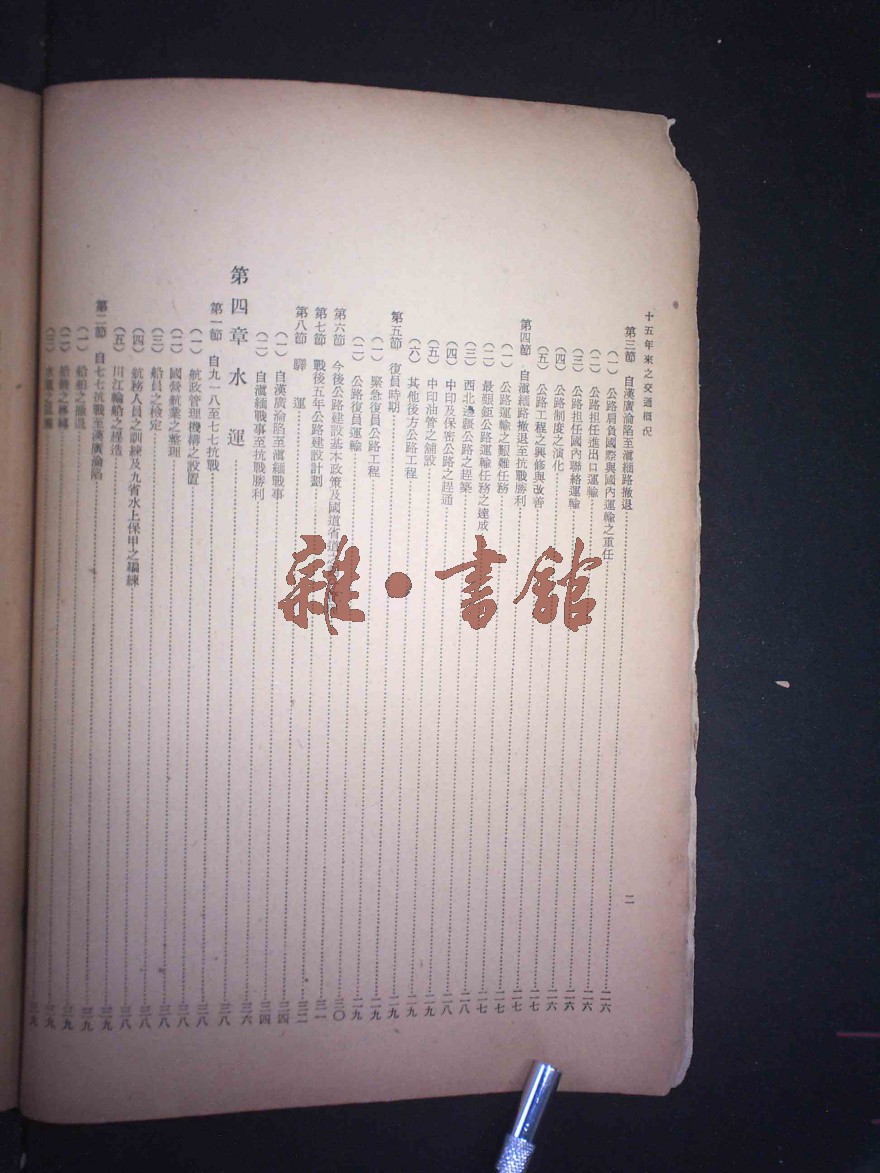 十五年來之交通概況 二
第三節 自漢廣淪陷至滇緬路撤退……二六
(一)公路肩負國際與國內運輸之重任……二六
(二)公路担任進出口運輸……二六
(三)公路担任國內聯絡運輸……二六
(四)公路制度之演化……二七
(五)公路工程之興修與改善……二七
第四節 自滇緬路撤退至抗戰勝利……二七
(一)公路運輸之艱難任務……二七
(二)最艱鉅公路運輸任務之達成……二八
(三)西北邊疆公路之趕築……二八
(四)中印及保密公路之趕通……二九
(五)中印油管之舖設……二九
(六)其他後方公路工程……二九
第五節 復員時期……二九
(一)緊急復員公路工程……二九
(二)公路復員運輸……三〇
第六節 今後公路建設基本政策及國道省道之……三一
第七節 戰後五年公路建設計劃……三二
第八節 驛運……三四
(一)自漢廣淪陷至滇緬戰事……三四
(二)自滇緬戰事至抗戰勝利……三六
第四章 水運……三八
第一節 自九一八至七七抗戰……三八
(一)航政管理機構之設置……三八
(二)國營航業之整理……三八
(三)船員之檢定……三八
(四)航務人員之訓練及九省水上保甲之編練……三九
(五)川江輪船之趕造……三九
第二節 自七七抗戰至漢廣淪陷……三九
(一)船舶之撤退……三九
(二)船舶之……
(三)水運之……
雜·書館